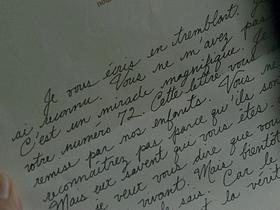 nou
Je vous écris en tremblant. Je
ai reconnu. Vous ne m'avez pas
C'est un miracle magnifique. Je
votre numéro 72. Cette lettre vous
remise par nos enfants. Vous ne
reconnaîtrez pas parce qu'ils son
Mais eux savent qui vous êtes
Je veux vous dire que vou
vivant. Mais bientôt
sais. Car le
la véri